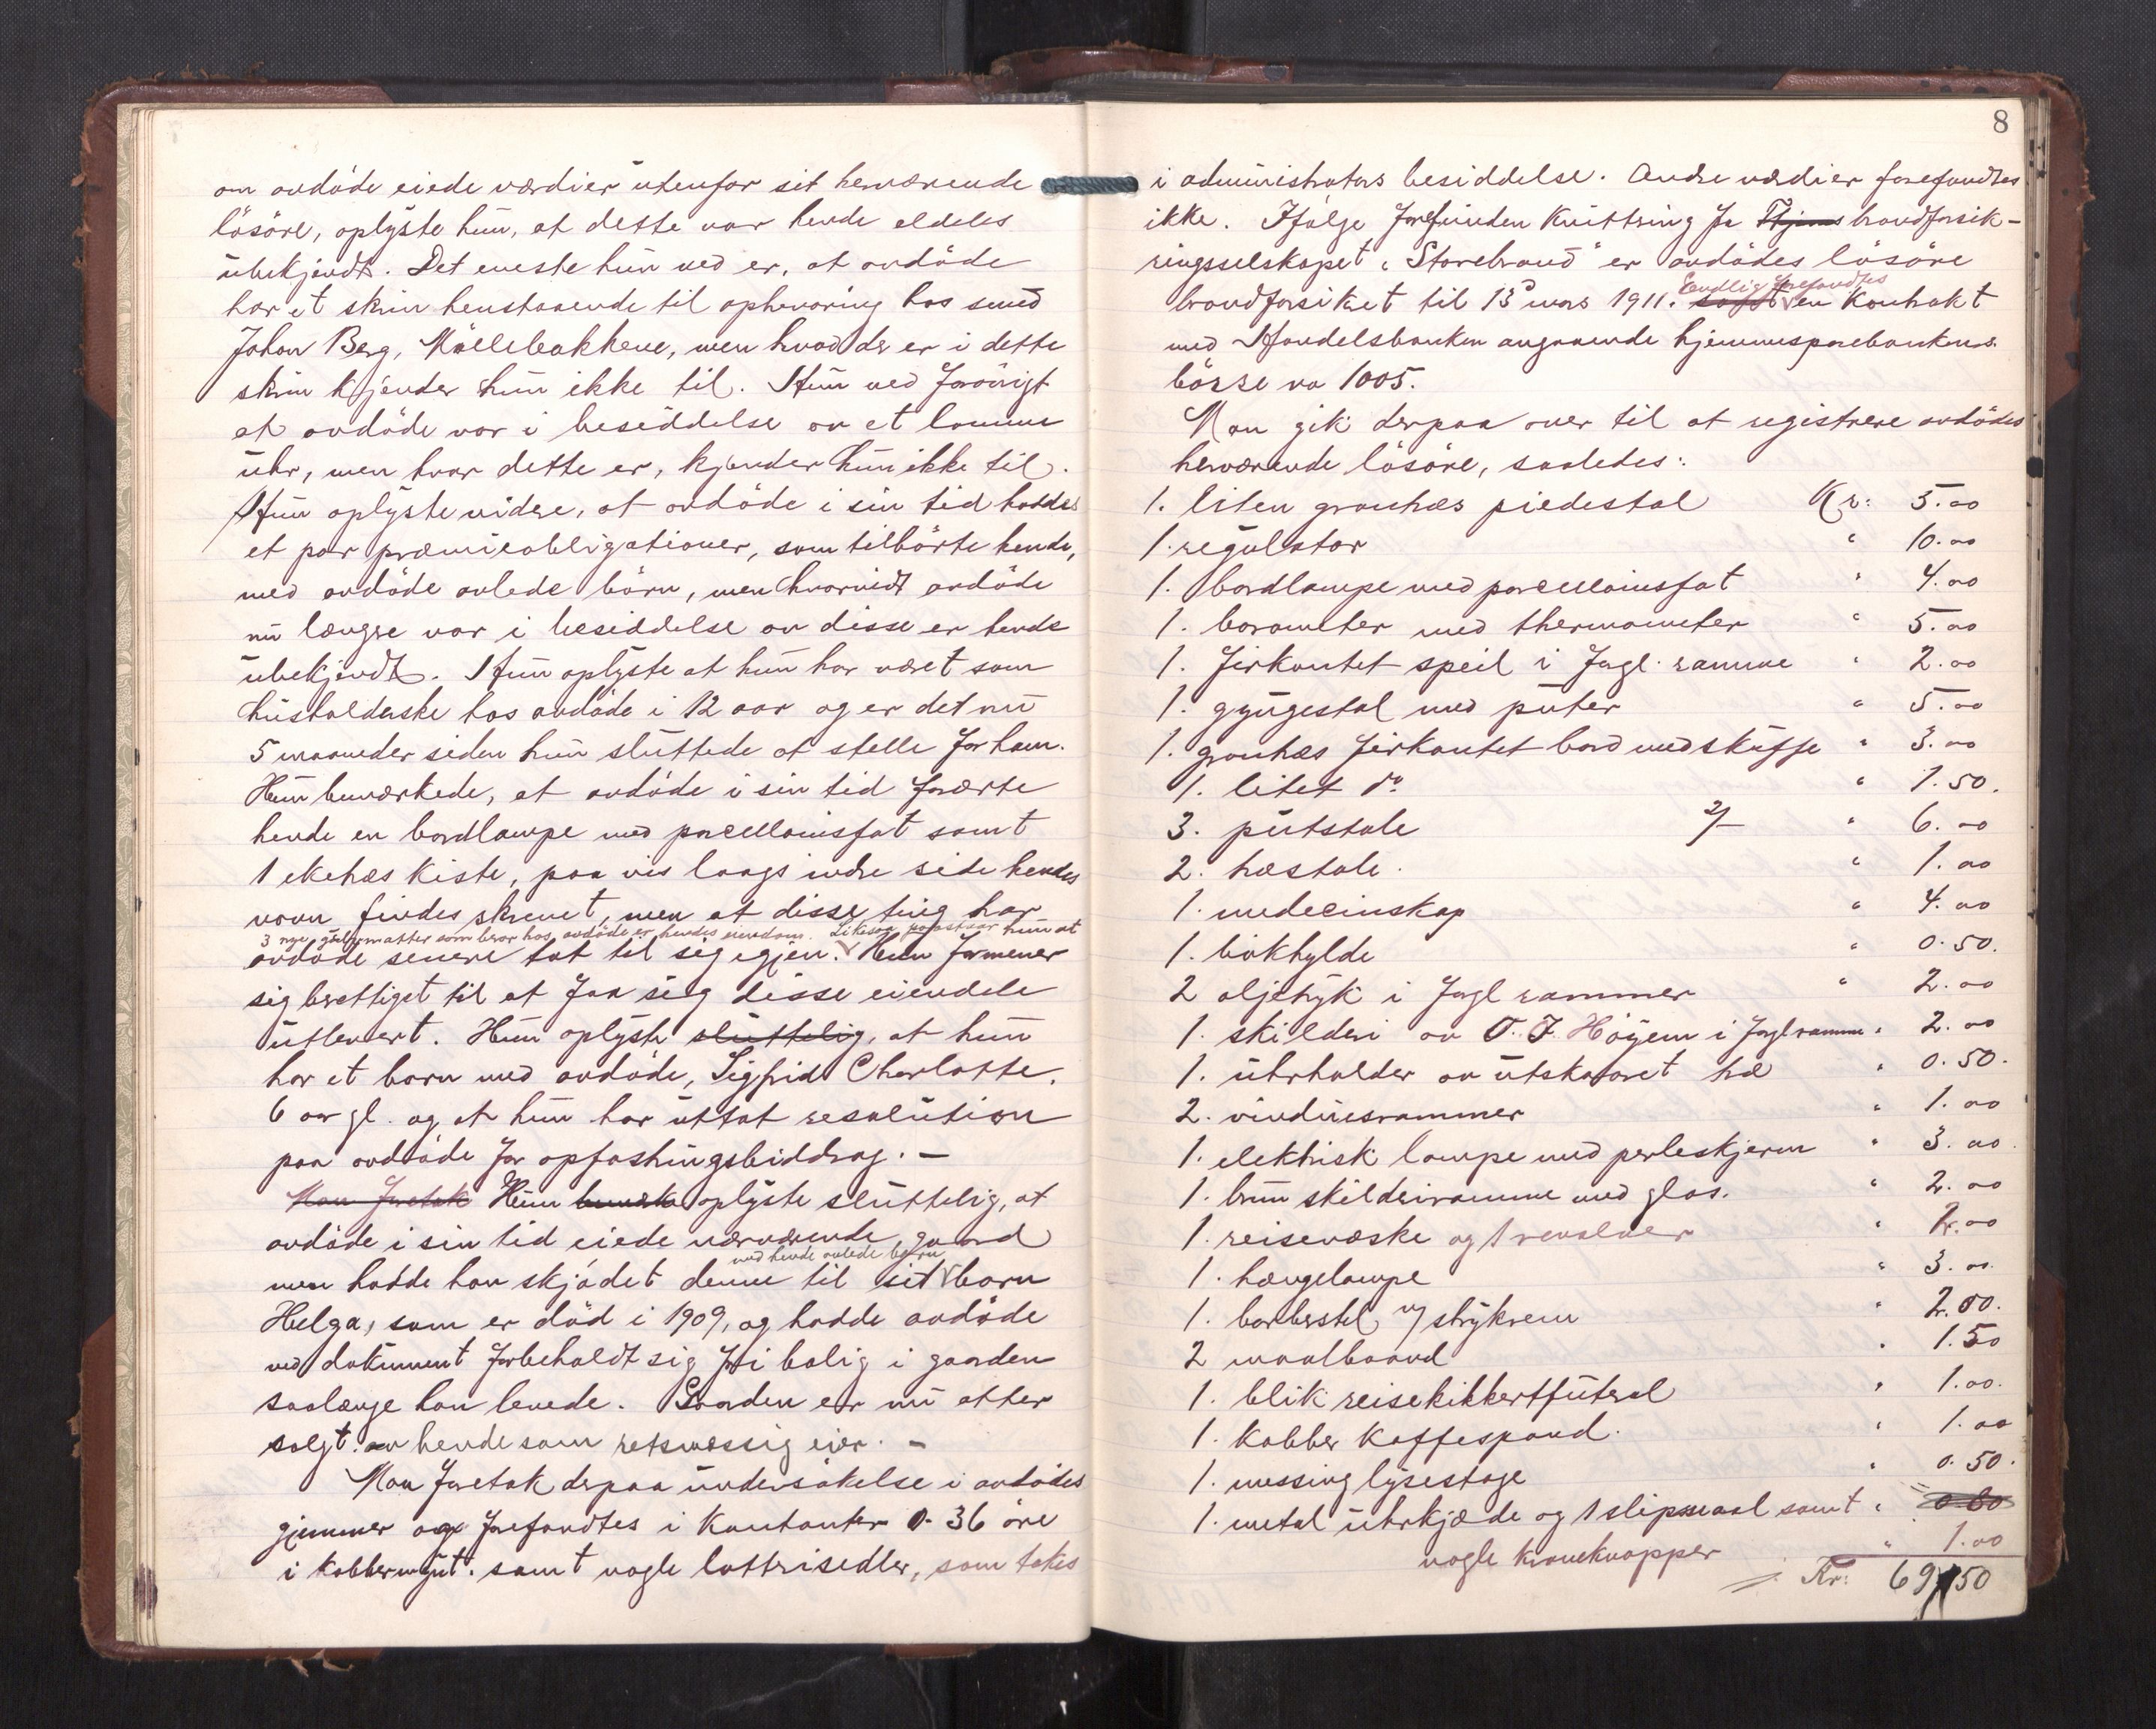 om avdöde eiede værdier utenfor sit herværende
lösöre, oplyste hun, at dette var hende aldeles
ubekjendt. Det eneste hun ved er, at avdöde
har et skrin henstaaende til opbevaring hos smed
Johan Berg, Möllebakkene, men hvad der er i dette
skrin kjender hun ikke til. Hun ved forövrigt
at avdöde var i besiddelse av et lomme
uhr, men hvor dette er, kjender hun ikke til.
Hun oplyste videre, at avdöde i sin tid hadde
et par præmieobligationer, som tilhörte hende,
med avdöde avlede börn, men hvorvidt avdöde
nu længre var i besiddelse av disse er hende
ubekjendt. Hun oplyste at hun har været som
husholderske hos avdöde i 12 aar og er det nu
5 maaneder siden hun sluttede at stelle for ham.
Hun bemerkede, at avdöde i sin tid forærte
hende en bordlampe med porcellainsfat samt
1 eketræs kiste, paa vis laags indre side hendes
navn findes skrevet, men at disse ting har
3 nye gulvmatter som beror hos avdöde er hendes eiendom. Likesaa paastaar hun at
avdöde senere tat til sig igjen. Hun formener
sig berettiget til at faa sig disse eiendele
utlevert. Hun oplyste sluttelig, at hun
har et barn med avdöde, Sigfrid Charlotte,
6 aar gl. og at hun har uttat resolution
paa avdöde for opfostringsbiddrag. –
Man foretok Hun bemerke oplyste sluttelig, at
avdöde i sin tid eiede nærværende gaard
med hende avlede barn
men hadde han skjödet denne til sit barn
Helga, som er död i 1909, og hadde avdöde
ved dokument forbeholdt sig fri bolig i gaarden
saalænge han levede. Gaarden er nu atter
solgt. av hende som retsmæssig eier. –
Man foretok derpaa undersökelse i avdödes
gjemmer og forefandtes i kontanter 0.36 öre
i kobbermynt. samt nogle lotterisedler, som tokes
8
i administrators besiddelse. Andre værdier forefandtes
ikke. Ifölge forefunden kvittring fra brandforsik-
ringsselskapet "Storebrand" er avdödes lösöre
Endelig forefandtes
brandforsikret til 13de mars 1911. samt en kontrakt
med Handelsbanken angaaende hjemmesparebankens
bösse no 1005.
Man gik derpaa over til at registrere avdödes
herværende lösöre, saaledes:
1. liten grantræs piedestal Kr: 5.00
1. regulator " 10.00
1. bordlampe med porcellainsfat " 4.00
1. barometer med thermometer " 5.00
1. firkantet speil i forgl. ramme " 2.00
1. gyngestol med puter " 5.00
1. grantræs firkantet bord med skuffe " 3.00
1. litet do " 1.50.
3. putstole 2/- " 6.00
2. træstole. " 1.00
1. medecinskap " 4.00
1. bokhylde " 0.50.
2 oljetryk i forgl rammer " 2.00
1. skilderi av O. J. Höyem i forgl ramme " 2.00
1. uhrholder av utskaaret træ " 0.50.
2. vinduesrammer " 1.00
1. elektrisk lampe med perleskjerm " 3.00.
1. brun skilderiramme med glas. " 2.00
1. reisevæske og 1 revolver " 2.00
1. hængelampe " 3.00.
1. barberstel m/ strykrem " 2.00.
2 maalbaand " 1.50
1. blik reisekikkertfuteral " 1.00.
1. kobber kaffespand. " 1.00
1. messing lysestage " 0.50.
1. metal uhrkjæde og 1 slipsnaal samt " 0.80
nogle kraveknapper " 1.00
Kr: 69,50